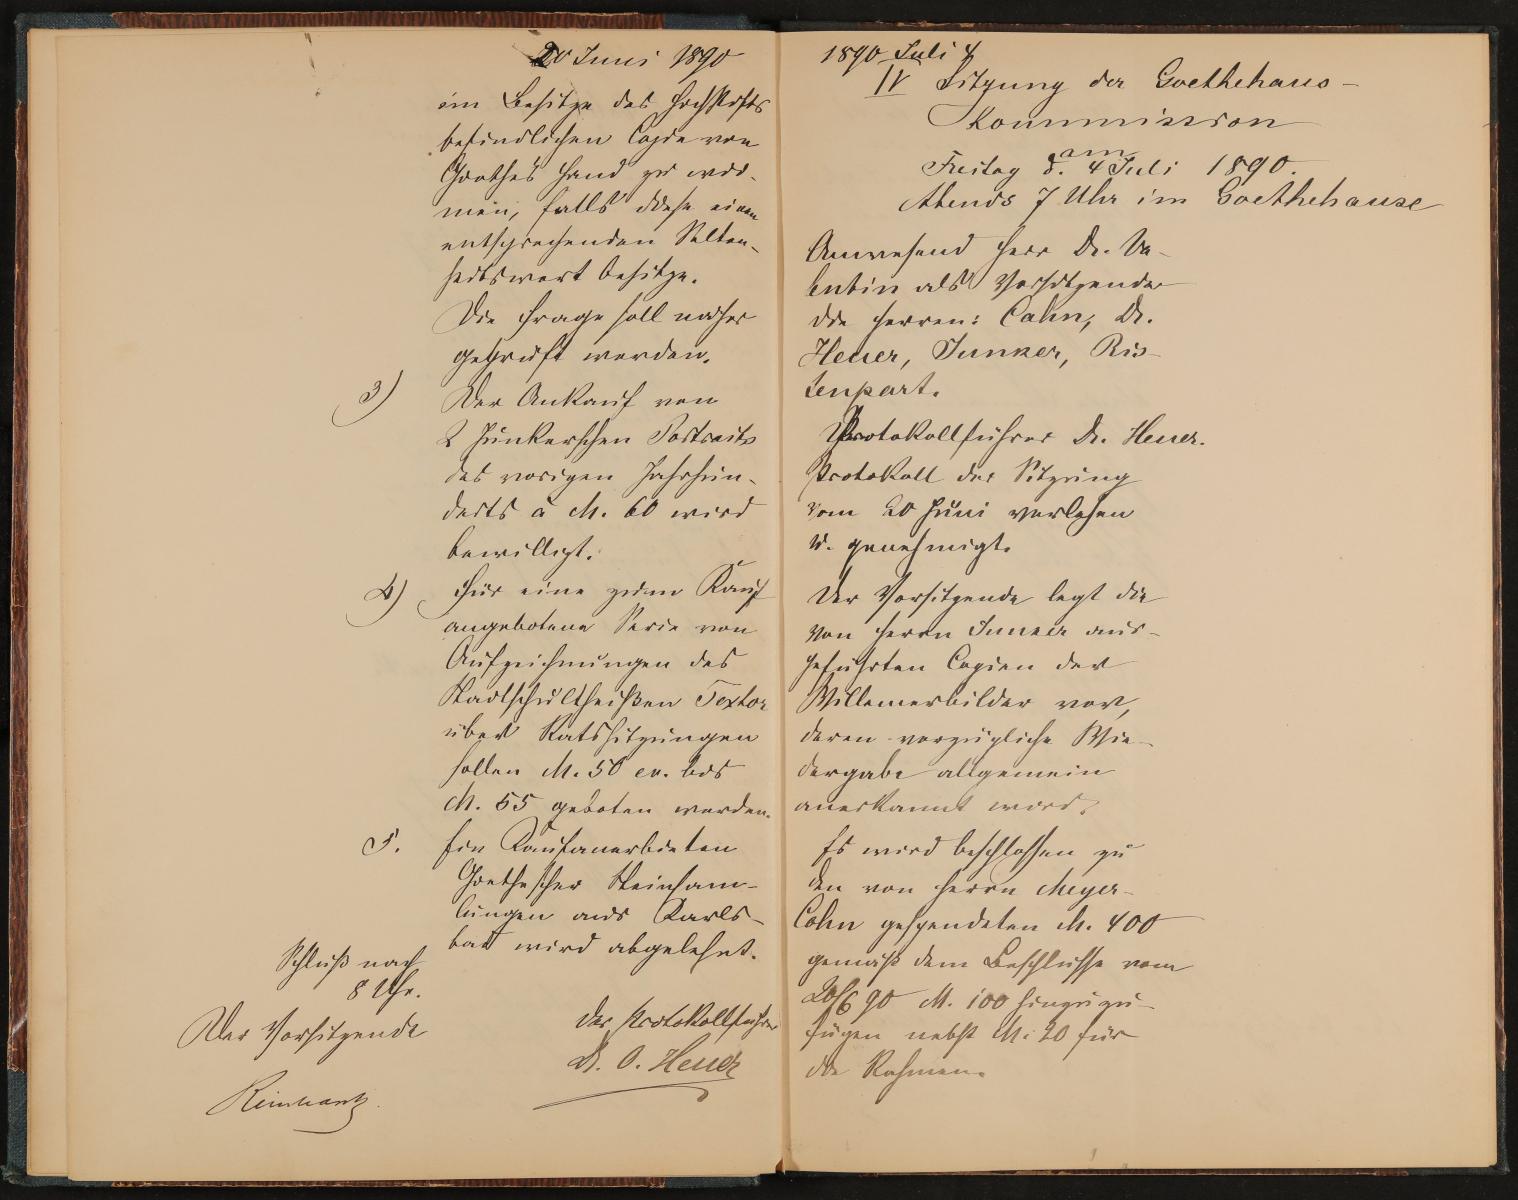 20 Juni 1890
im Besitze des Hochstifts
befindlichen Copie von
Goethes Hand zu wid-
men, falls diese einen
entsprechenden Selten-
heitswert besitze.
Die Frage soll näher
geprüft werden.
3) Der Ankauf von
2 Junkerschen Portraits
des vorigen Jahrhun-
derts à M. 60 wird
bewilligt.
4) Für eine zum Kauf
angebotene Serie von
Aufzeichnungen des
Stadtschultheißen Textor
über Ratssitzungen
sollen M. 50 ev. bis
M. 55 geboten werden.
5. Ein Kaufanerbieten
Goethescher Steinsam-
lungen aus Karls-
bad wird abgelehnt.
Schluß nach
8 Uhr.
Der Vorsitzende
Der Protokollführer
Dr. O. Heuer
1890 Juli 4
IV Sitzung der Goethehaus-
Kommission
am
Freitag d. 4 Juli 1890.
Abends 7 Uhr im Goethehause
Anwesend Herr Dr. Va-
lentin als Vorsitzender
die Herren: Cahn, Dr.
Heuer, Junker, Ris-
tenpart.
Protokollführer Dr. Heuer.
Protokoll der Sitzung
vom 20 Juni verlesen
u. genehmigt.
Der Vorsitzende legt die
von Herrn Junker aus-
geführten Copien der
Willemerbilder vor,
deren vorzügliche Wie-
dergabe allgemein
anerkannt wird.
Es wird beschlossen zu
den von Herrn Meyer-
Cohn gespendeten M. 400
gemäß dem Beschlusse vom
20/6 90 M. 100 hinzuzu-
fügen nebst M. 20 für
die Rahmen.